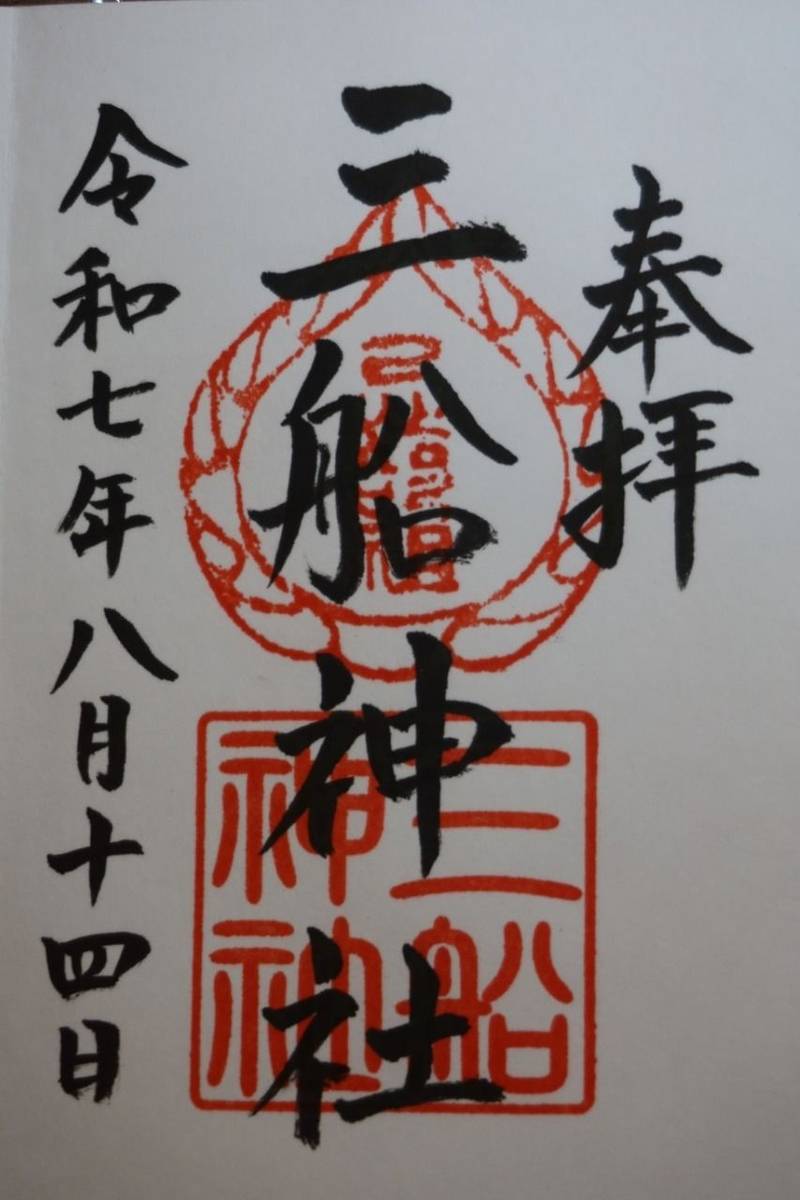 奉拝
三船神社
令和七年八月十四日
三船
神社